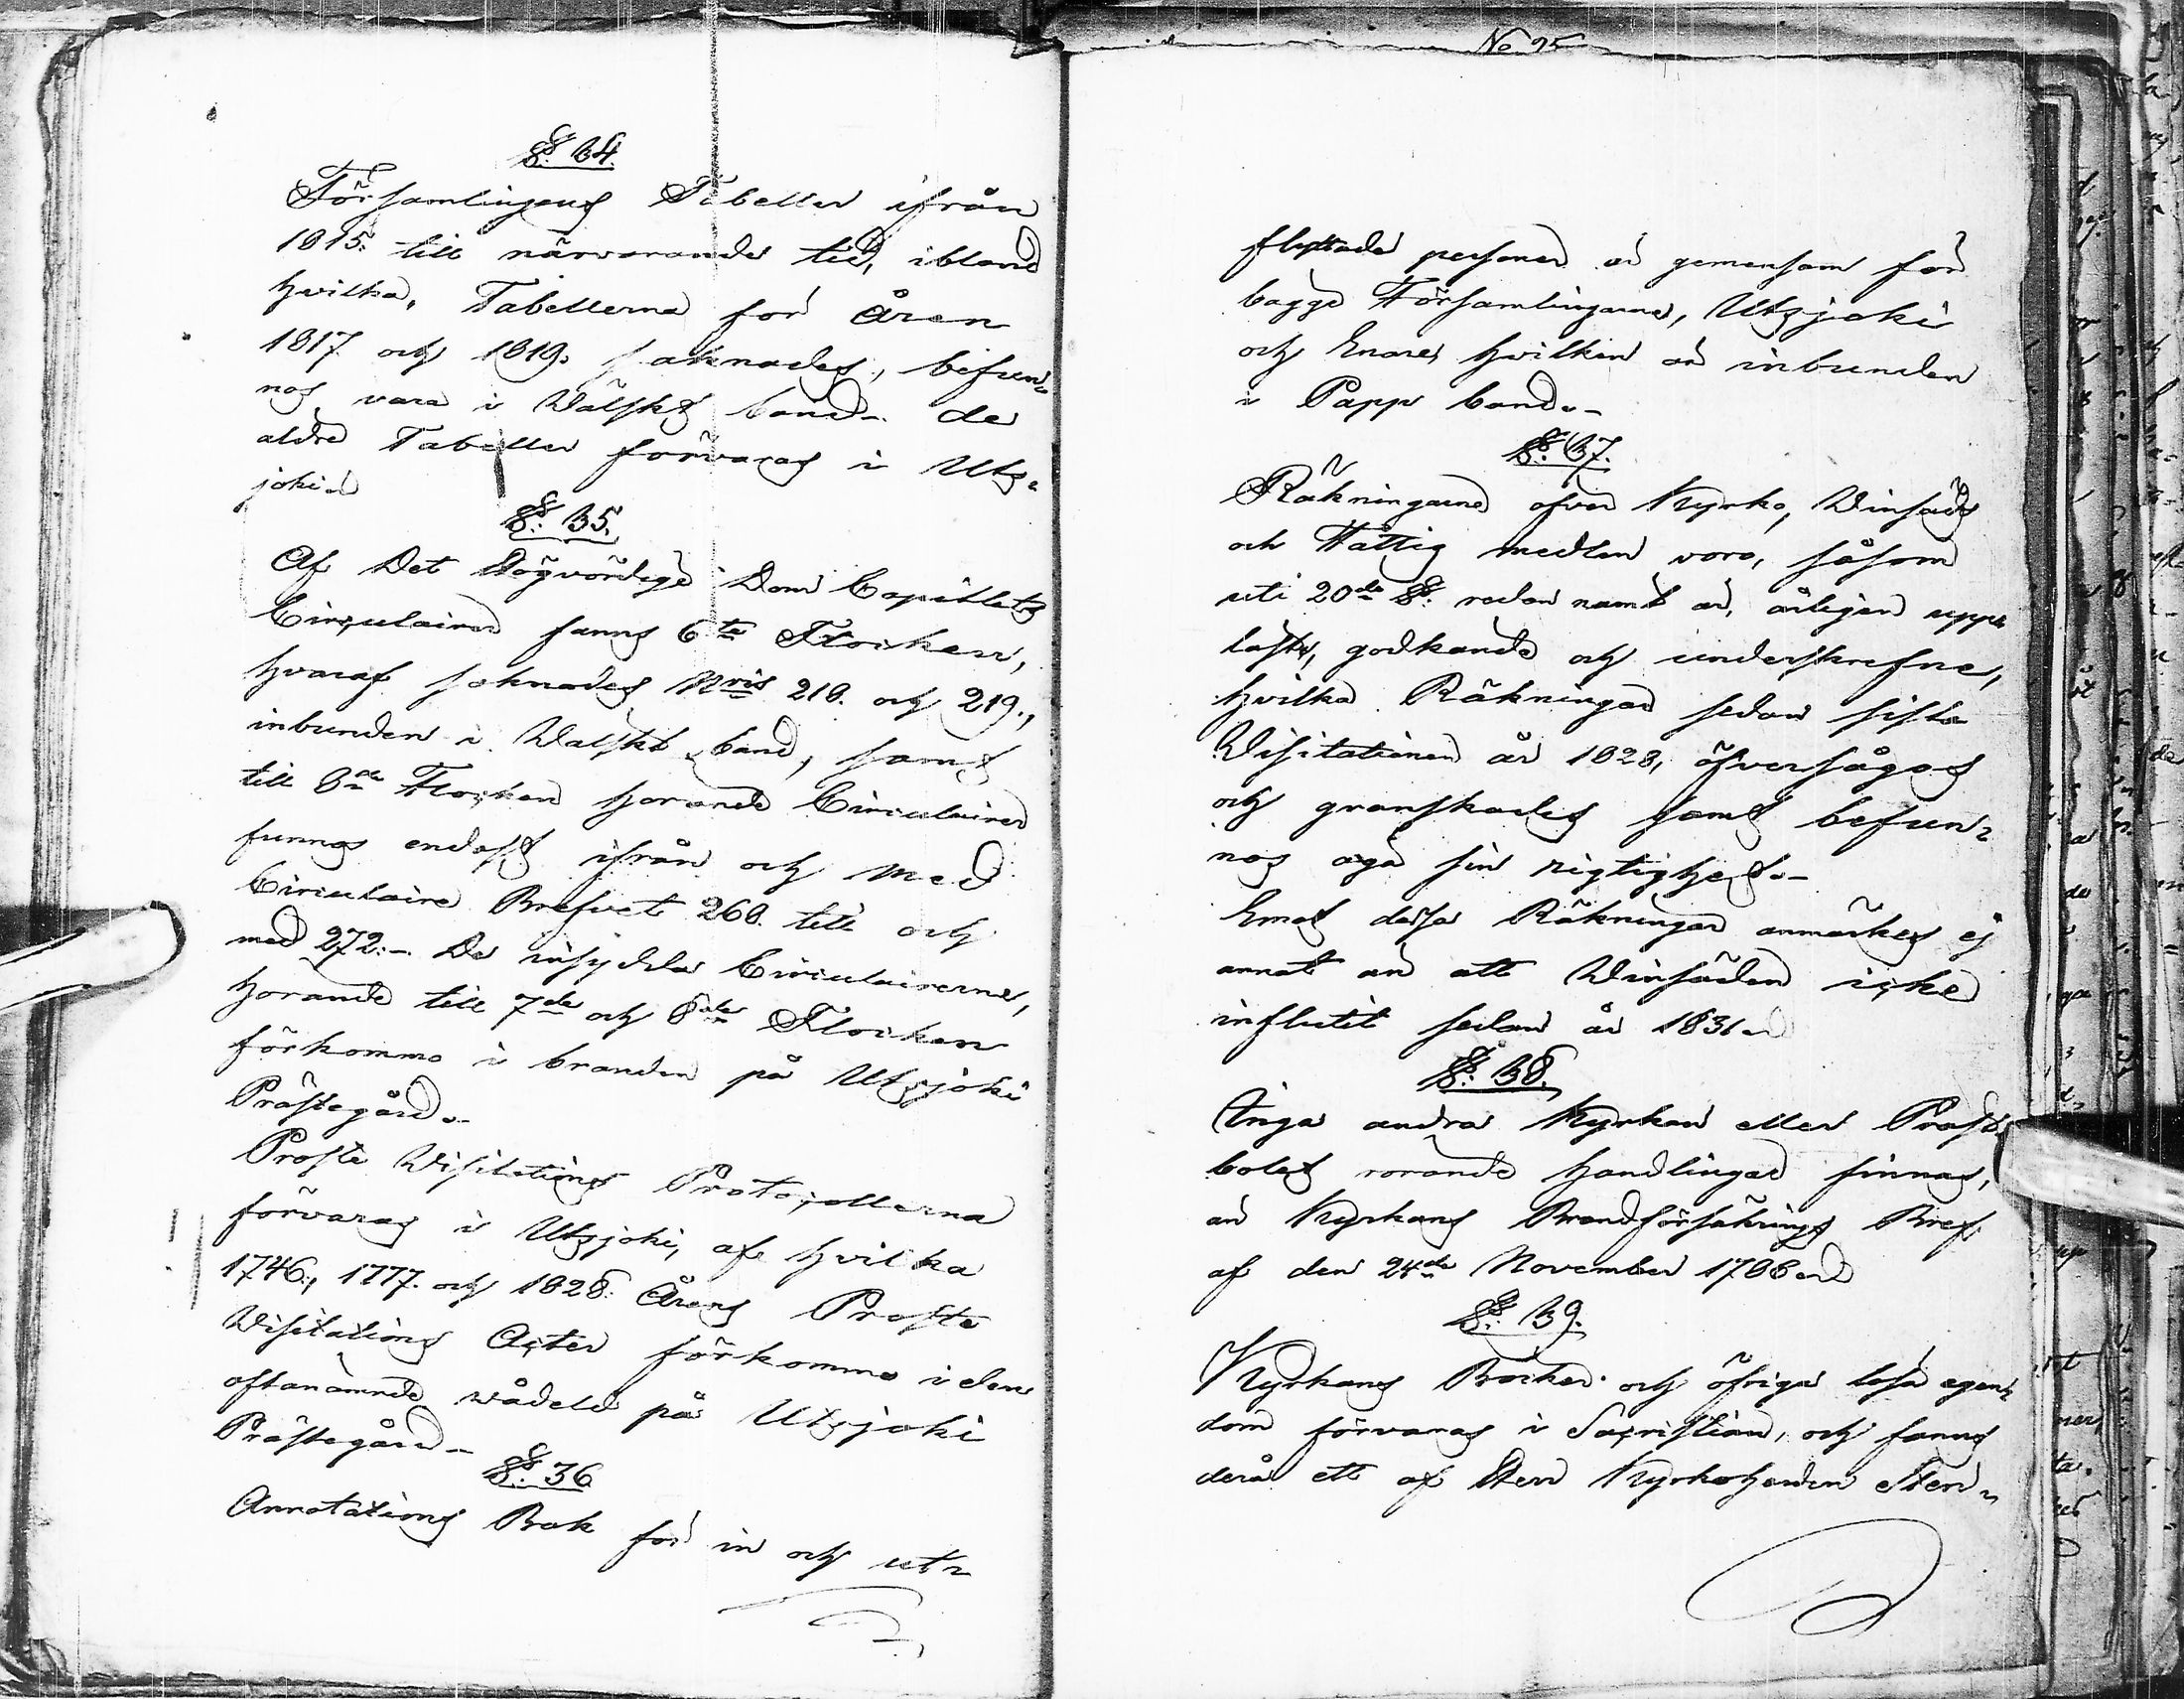 §. 34.
Församlingens Tabeller ifrån
1815. till närvarande tid, ibland
hvilka, Tabellerna för Åren
1817. och 1819. saknades, befun-
nos vara i Wälskt band. de
äldre Tabeller förvaras i Utz-
joki.
§. 35.
Af Det Högvördige Dom Capitlets
Circulairer fanns 6te Flocken,
hvaraf saknades Nris 218. och 219.,
inbunden i Wälskt band, samt
till 8de Flocken hörande Circulairer
funnos endast ifrån och med
Circulaire Brefvet 268. till och
med 272. - De insydda Circulairerne,
hörande till 7de och 8de Flocken
förkommo i branden på Utzjoki
Prästegård. -
Proste Visitations Protocollerna
förvaras i Utzjoki, af hvilka
1746., 1777. och 1828. Årens Proste
Visitations Acter förkommo i den
oftanämnde vådeld på Utzjoki
Prästegård -
§. 36
Annotations Bok för in och ut-
No 25
flyttade personer är gemensam för
bägge Församlingarne, Utzjoki
och Enare, hvilken är inbunden
i Papp band. -
§. 37.
Räkningarne öfver Kyrko, Vinsäds
och Fattig medlen voro, såsom
uti 20de §. redan nämt är, årligen upp-
läste, godkände och underskrefne,
hvilka Räkningar sedan sista
Visitationen år 1828, öfversågos
och granskades samt befun-
nos äga sin rigtighet. -
Emot dessa Räkningar anmärkes ej
annat än att Vinsäden icke
influtit sedan år 1831.
§. 38.
Inga andra Kyrkan eller Prest-
bolet rörande handlingar finnas,
än Kyrkans Brandförsäkrings Bref
af den 24de November 1788.
§. 39.
Kyrkans Böcker och öfriga lösa egen-
dom förvaras i Sacristian, och fanns
derå ett af Herr Kyrkoherden Sten-